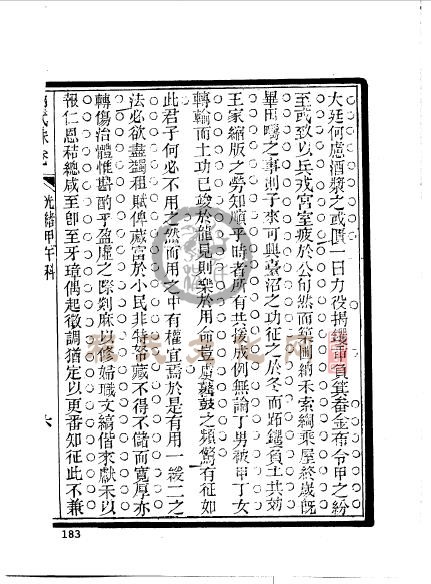 大廷何慮酒漿之或匱一日力役揭鑊而負箕畚金布令甲之紛
至或致以兵戎宮室疲於公旬然而築圃納禾索綯乘屋終歲既
畢田疇之事則子來可與臺沼之功征之於冬而跖鑊負土共効
王家縮版之勞知順乎時者又有共援成例無論丁男被甲丁女
轉輸而土功已竣於龍見則樂於用命豈虞鼛鼓之頻驚有征如
此君子何必不用之然而用之中有權宜焉於是有用一緩二之
法必欲盡蠲租賦俾歲富於小民非特帑藏不得不儲而寬厚亦
轉傷治體惟斟酌乎盈虛之際剡麻以修婦職文縞偕來獻禾以
報仁恩秸總咸至即至牙璋偶起徵調猶定以更番知征此不兼
光緒甲午科
六
183